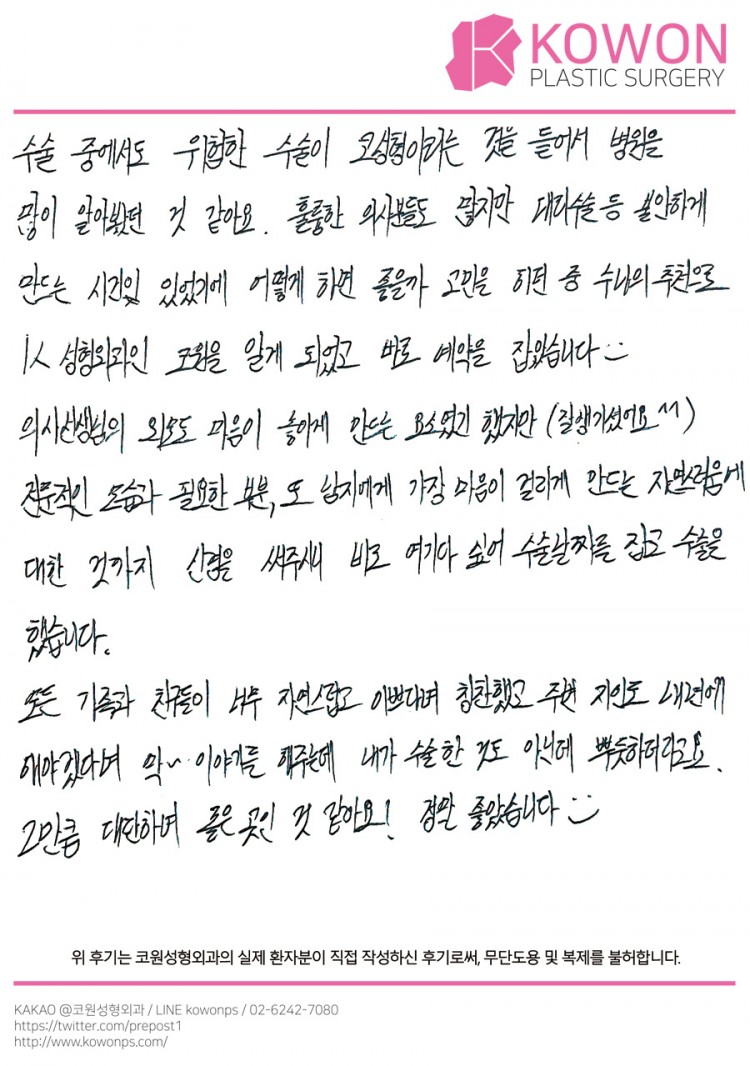 KOWON
PLASTIC SURGERY
수술 중에서도 위험한 수술이 코성형이라는 것을 들어서 병원을
많이 알아봤던 것 같아요. 훌륭한 의사분들도 많지만 대리수술 등 불안하게
만드는 시건일 있었기에 어떻게 하면 좋을까 고민을 하던 중 수나의 추천으로
1人 성형외과인 코원을 알게 되었고 바로 예약을 잡았습니다 :)
의사선생님의 외모도 마음이 놓이게 만드는 요소였긴 했지만 (잘생기셨어요^^)
전문적인 모습과 필요한 부분, 또 남자에게 가장 마음이 걸리게 만드는 자연스러움에
대한 것까지 신경을 써주시니 바로 여기다 싶어 수술날짜를 잡고 수술을
했습니다.
모든 가족과 친구들이 너무 자연스럽고 이쁘다며 칭찬했고 주변 지인도 내년에
해야겠다며 막~ 이야기를 해주는데 내가 수술한 것도 아닌데 뿌듯하더라고요.
그만큼 대단하며 좋은 곳인 것 같아요! 정말 좋았습니다 :)
위 후기는 코원성형외과의 실제 환자분이 직접 작성하신 후기로써, 무단도용 및 복제를 불허합니다.
KAKAO @코원성형외과 / LINE kowonps / 02-6242-7080
https://twitter.com/prepost1
http://www.kowonps.com/